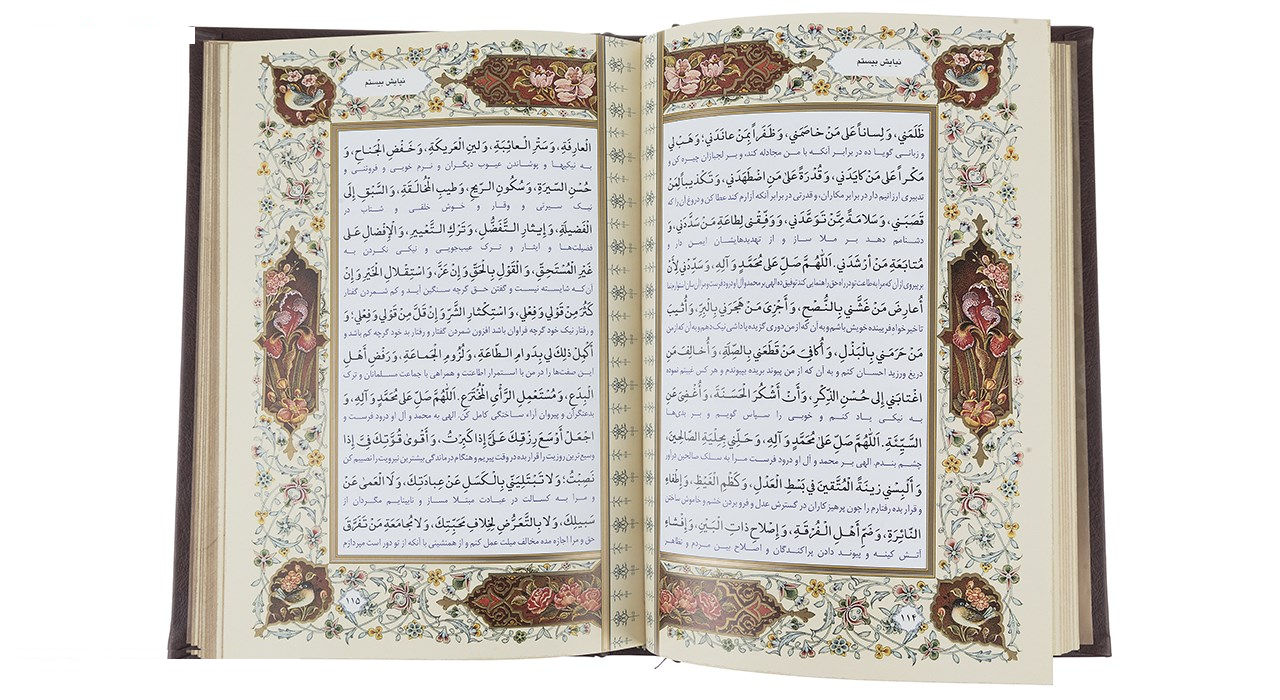 نیایش بیستم
ظَلَمَني، وَ لِساناً عَلى مَنْ خاصَمَني، وَ ظَفَراً بِمَنْ عانَدَني؛ وَ هَبْ لي
و زبانی گویا ده در برابر آنکه با من مجادله کند، و بر لجبازان چیره کن و
مَكْراً عَلى مَنْ كايَدَني، وَ قُدْرَةً عَلى مَنِ اضْطَهَدَني، وَ تَكْذيباً لِمَنْ
تدبیری ارزانیم دار در برابر مکاران، و قدرتی در برابر آنکه آزارم کند عطا کن و دروغ آن را که
قَصَبَني، وَ سَلامَةً مِمَّنْ تَوَعَّدَني، وَ وَفِّقْني لِطاعَةِ مَنْ سَدَّدَني، وَ
دشنامم دهد بر ملا ساز و از تهدیدهایشان ایمن دار و
مُتابَعَةِ مَنْ أرْشَدَني. اَللّهُمَّ صَلِّ عَلى مُحَمَّدٍ وَ آلِهِ، وَ سَدِّدْني لِأَنْ
بر پیروی از آن که مرا به طاعت تو در راه حق راهنمایی کند توفیق ده الهی بر محمد و آل او درود فرست و مرا آن سان استوار بنما
اُعارِضَ مَنْ غَشَّني بِالنُّصْحِ، وَ أجْزِيَ مَنْ هَجَرَني بِالْبِرِّ، وَ اُثيبَ
تا خیرخواه فریبنده خویش باشم و به آن که از من دوری گزیده پاداشی نیک دهم و به آن که از من
مَنْ حَرَمَني بِالْبَذْلِ، وَ اُكافِيَ مَنْ قَطَعَني بِالصِّلَةِ، وَ اُخالِفَ مَنِ
دریغ ورزید احسان کنم و به آن که از من پیوند بریده بپیوندم و هر کس غیبتم نموده
اغْتابَني إلى حُسْنِ الذِّكْرِ، وَ أنْ أشْكُرَ الْحَسَنَةَ، وَ اُغْضِيَ عَنِ
به نیکی یاد کنم و خوبی را سپاس گویم و بر بدی‌ها
السَّيِّئَةِ. اَللّهُمَّ صَلِّ عَلى مُحَمَّدٍ وَ آلِهِ، وَ حَلِّني بِحِلْيَةِ الصّالِحينَ،
چشم بندم. الهی بر محمد و آل او درود فرست مرا به سلک صالحین درآور
وَ ألْبِسْني زينَةَ الْمُتَّقينَ في بَسْطِ الْعَدْلِ، وَ كَظْمِ الْغَيْظِ، وَ إطْفاءِ
و قرار بده رفتارم را چون پرهیزکاران در گسترش عدل و فرو بردن خشم و خاموش ساختن
النّائِرَةِ، وَ ضَمِّ أهْلِ الْفُرْقَةِ، وَ إصْلاحِ ذاتِ الْبَيْنِ، وَ إفْشاءِ
آتش کینه و پیوند دادن پراکندگان و اصلاح بین مردم و تظاهر
۱۱۴
نیایش بیستم
الْعارِفَةِ، وَ سَتْرِ الْعائِبَةِ، وَ لينِ الْعَريكَةِ، وَ خَفْضِ الْجَناحِ، وَ
به نیکیها و پوشاندن عیوب دیگران و نرم خویی و فروتنی و
حُسْنِ السّيرَةِ، وَ سُكُونِ الرّيحِ، وَ طيبِ الْمُخالَقَةِ، وَ السَّبْقِ إلَى
نیک سیرتی و وقار و خوش خلقی و شتاب در
الْفَضيلَةِ، وَ إيثارِ التَّفَضُّلِ، وَ تَرْكِ التَّعْييرِ، وَ الْإفْضالِ عَلى
فضیلت‌ها و ایثار و ترک عیب‌جویی و نیکی نکردن به
غَيْرِ الْمُسْتَحِقِّ، وَ الْقَوْلِ بِالْحَقِّ وَ إنْ عَزَّ، وَ اسْتِقْلالِ الْخَيْرِ وَ إنْ
آن که شایسته نیست و گفتن حق گرچه سنگین آید و کم شمردن گفتار
كَثُرَ مِنْ قَوْلي وَ فِعْلي، وَ اسْتِكْثارِ الشَّرِّ وَ إنْ قَلَّ مِنْ قَوْلي وَ فِعْلي؛ وَ
و رفتار نیک خود گرچه فراوان باشد افزون شمردن گفتار و رفتار بد خود گرچه کم باشد و
أكْمِلْ ذلِكَ لي بِدَوامِ الطّاعَةِ، وَ لُزُومِ الْجَماعَةِ، وَ رَفْضِ أهْلِ
این صفت‌ها را در من با استمرار اطاعتت و همراهی با جماعت مسلمانان و ترک
الْبِدَعِ، وَ مُسْتَعْمِلِ الرَّأْيِ الْمُخْتَرَعِ. اَللّهُمَّ صَلِّ عَلى مُحَمَّدٍ وَ آلِهِ، وَ
بدعتگران و پیروان آراء ساختگی کامل کن. الهی به محمد و آل او درود فرست و
اجْعَلْ أوْسَعَ رِزْقِكَ عَلَيَّ إذا كَبِرْتُ، وَ أقْوى قُوَّتِكَ فِيَّ إذا
وسیع‌ترین روزیت را قرار بده در وقت پیریم و هنگام درماندگی بیشترین نیرویت را نصیبم کن
نَصِبْتُ؛ وَ لا تَبْتَلِيَنّي بِالْكَسَلِ عَنْ عِبادَتِكَ، وَ لا الْعَمى عَنْ
و مرا به کسالت در عبادت مبتلا مساز و نابینایم مگردان از
سَبيلِكَ، وَ لا بِالتَّعَرُّضِ لِخِلافِ مَحَبَّتِكَ، وَ لا مُجامَعَةِ مَنْ تَفَرَّقَ
حق و مرا اجازه مده مخالف میلت عمل کنم و از همنشینی با آنکه از تو دور است میردازم
۱۱۵